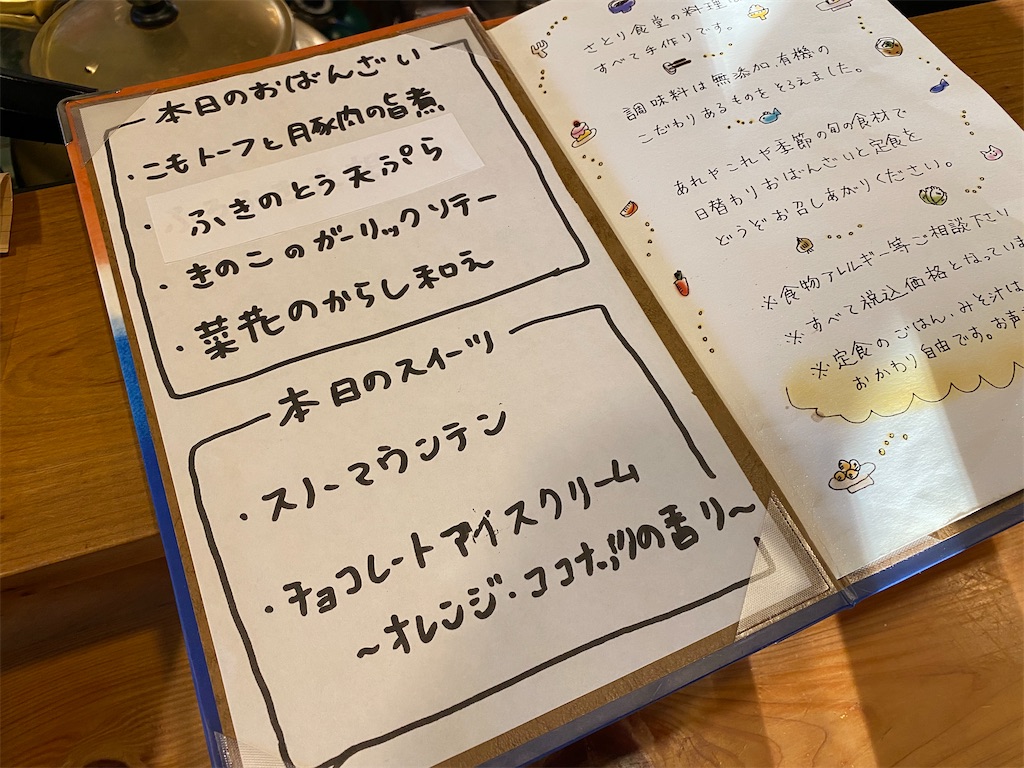 本日のおばんざい
・こもトーフと豚肉の旨煮
・ふきのとう天ぷら
・きのこのガーリックソテー
・菜花のからし和え
本日のスイーツ
・スノーマウンテン
・チョコレートアイスクリーム
〜オレンジ・ココナッツの香り〜
さとり食堂の料理は
すべて手作りです。
調味料は無添加有機の
こだわりあるものをそろえました。
あれやこれや季節の旬の食材で
日替わりおばんざいと定食を
どうぞお召しあがりください。
※食物アレルギー等ご相談下さい
※すべて税込価格となっていま
※定食のごはん、みそ汁は
おかわり自由です。お声